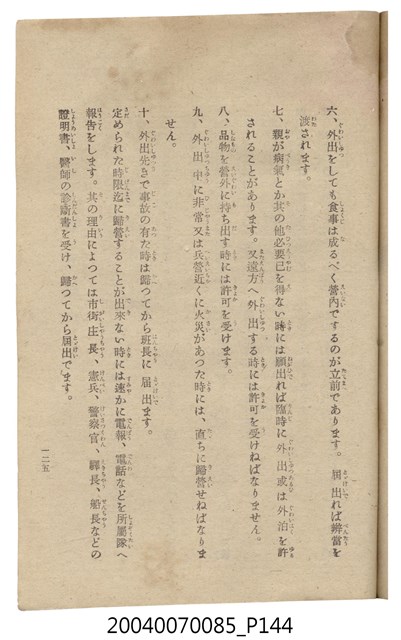 六、外出をしても食事は成るべく營內でするのが立前であります。屆出れば辨當を
渡されます。
七、親が病氣とか其の他必要已を得ない時には願出れば臨時に外出或は外泊を許
されることがあります。又遠方へ外出する時には許可を受けねばなりません。
八、品物を營外に持ち出す時には許可を受けます。
九、外出中に非常又は兵營近くに火災があつた時には、直ちに歸營せねばなりま
せん。
十、外出先きで事故の有た時は歸つてから班長に屆出ます。
定められた時限迄に歸營することが出來ない時には速かに電報、電話などを所屬隊へ
報告をします。其の理由によつては市街庄長、憲兵、警察官、驛長、船長などの
證明書、醫師の診斷書を受け、歸つてから屆出でます。
一二五
20040070085_P144